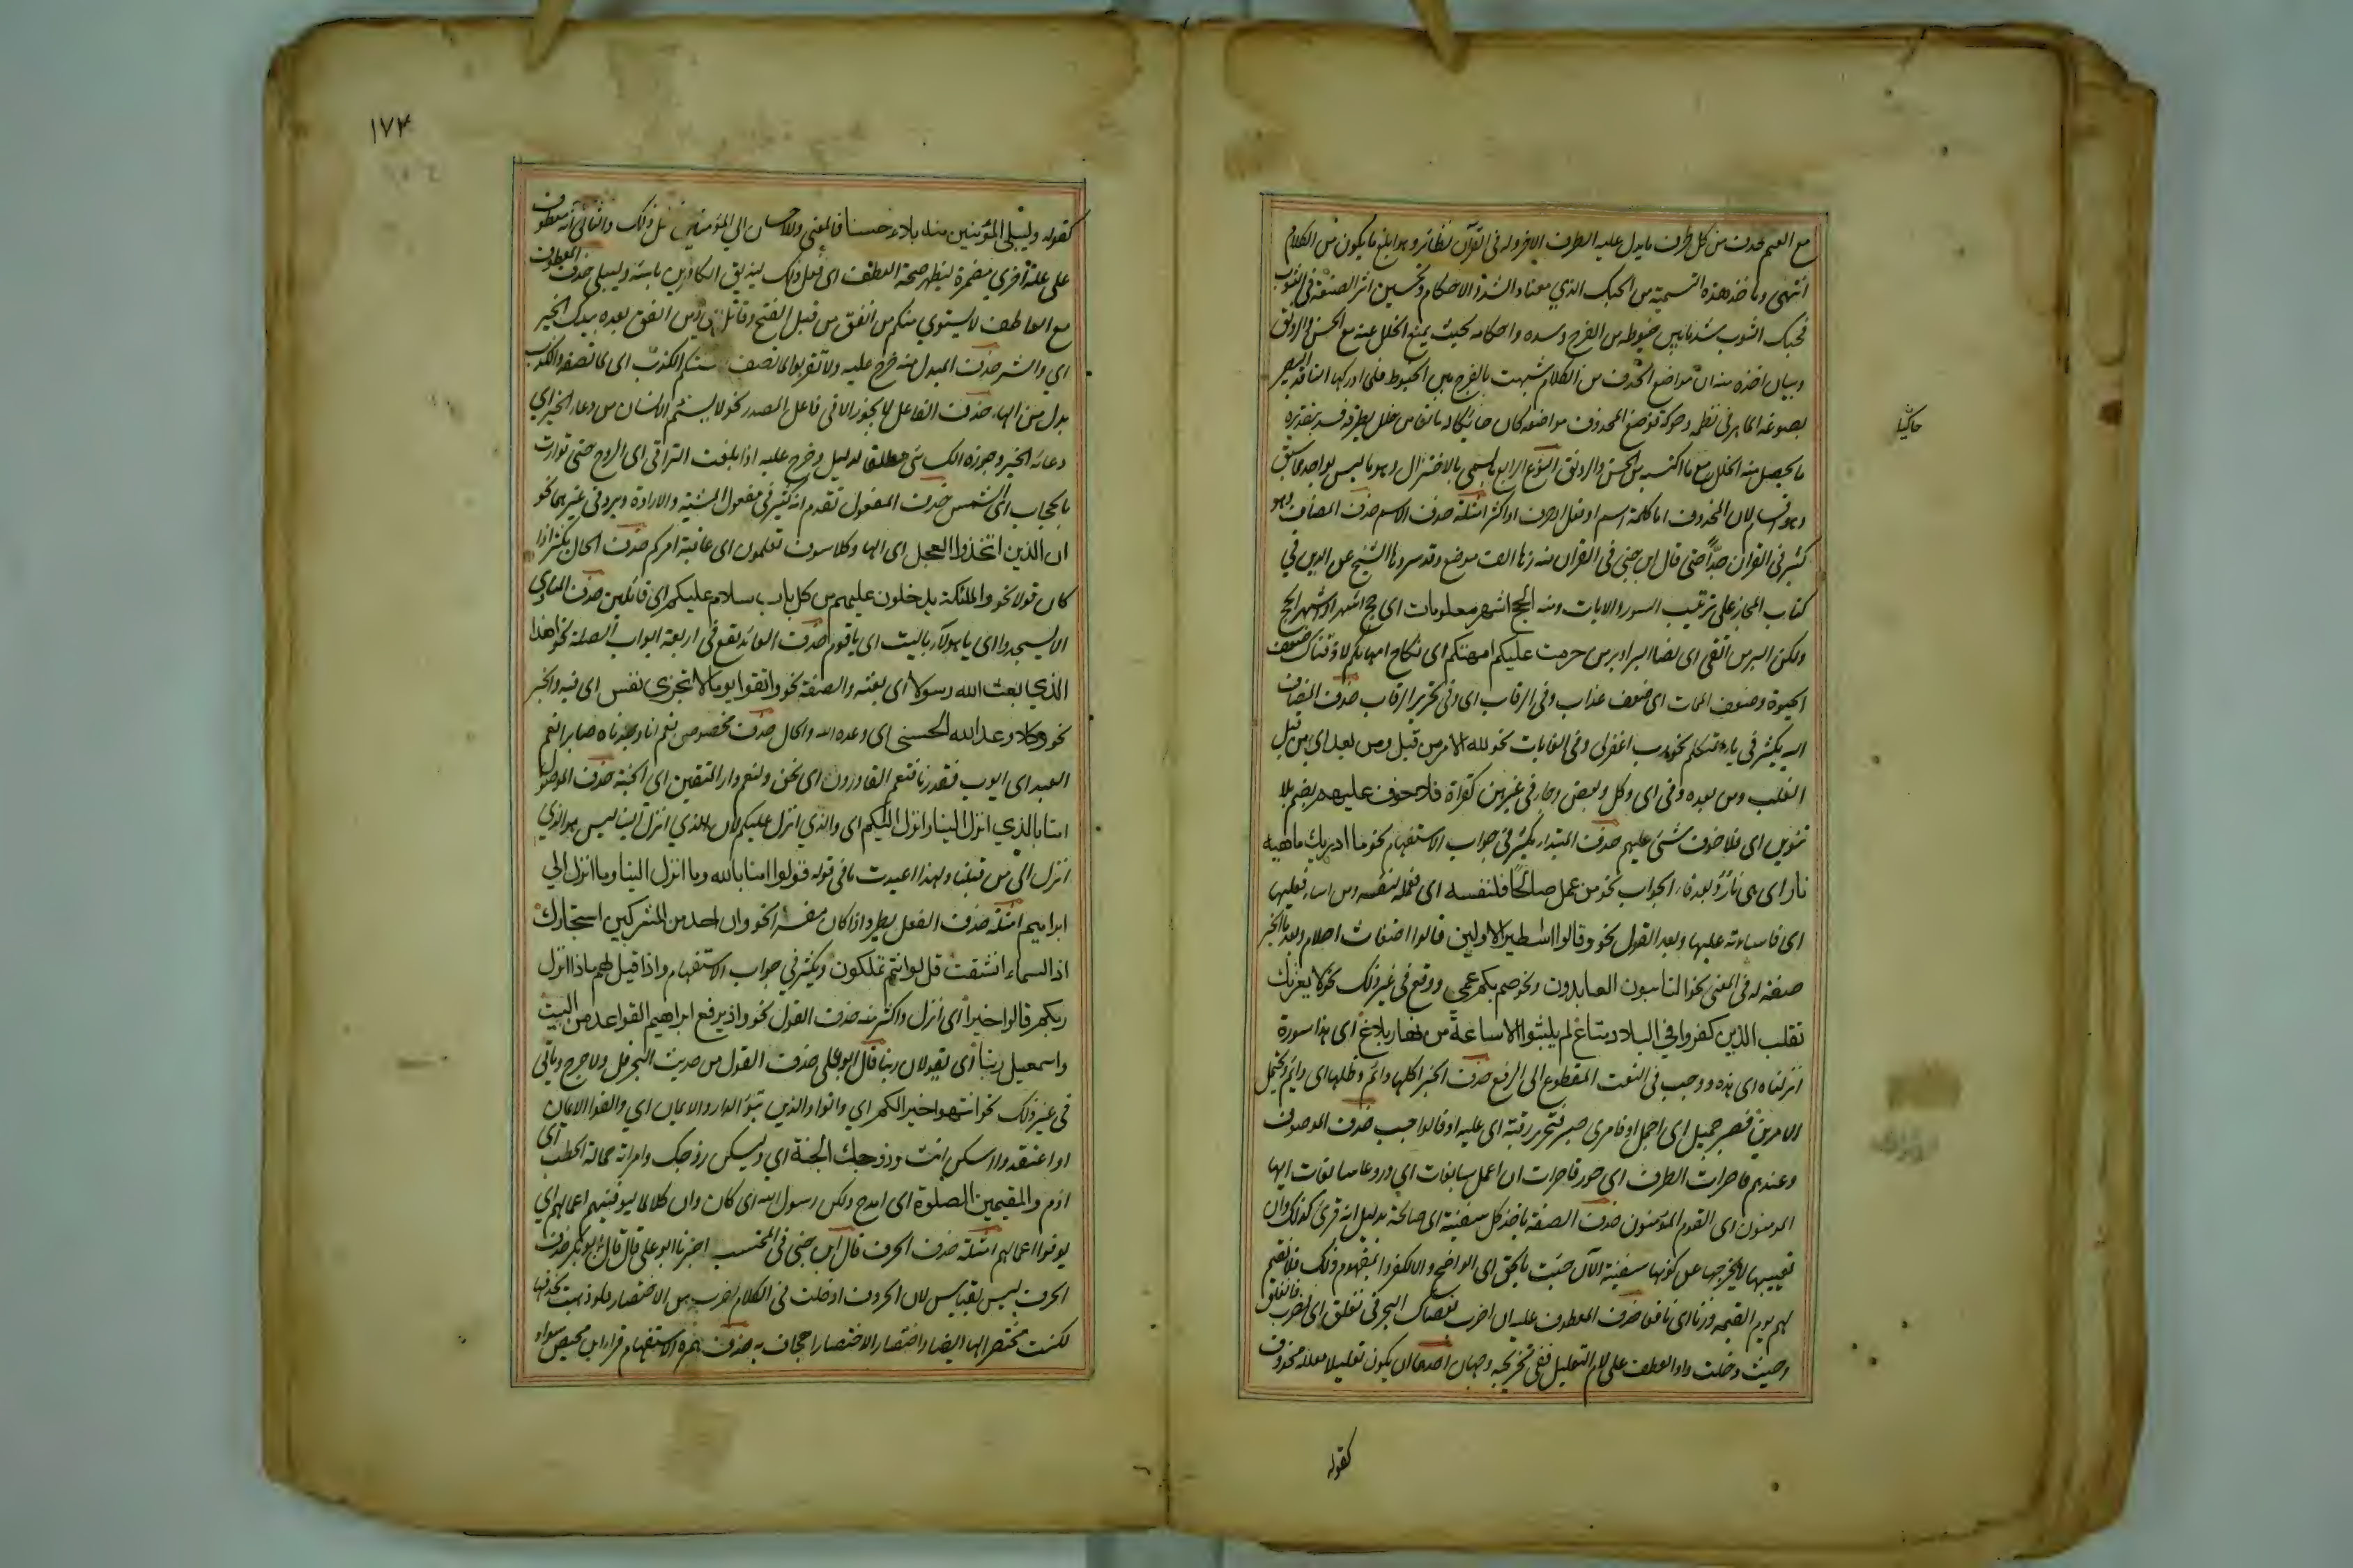 مع العم حذف من كل طرف ما يدل عليه الطرف الاخر وله فى القرآن نظائر وهو ابلغ ما يكون من الكلام
انتهى وماخذ هذه التسمية من الحبك الذي معناه الشد والاحكام وتحسين اثر الصنعة فى الثوب
فحبك الثوب شد ما بين خيوطه من الفرج وسده واحكامه بحيث يمنع الخلل عنه مع الحسن والرونق
وبيان اخذه منه ان مواضع الحذف من الكلام شبهت بالفرج بين الخيوط فلما ادركها الناقد البصير
بصوغه الماهر فى نظمه وحوكه فوضع المحذوف مواضعه كان حائكا له مانعا من خلل يطرقه فسد بتقديره
ما يحصل به الخلل مع ما اكتسبه من الحسن والرونق النوع الرابع ما يسمى بالاختزال وهو ما ليس بواحد مما سبق
وهو اقسام لان المحذوف اما كلمة اسم او فعل او حرف او اكثر امثلة حذف الاسم حذف المضاف وهو
كثير فى القران جدّا حتى قال ابن جنى فى القران منه زهاء الف موضع وقد سردها الشيخ عز الدين في
كتاب المجاز على ترتيب السور والايات ومنه الحج اشهر معلومات اى حج اشهر او اشهر الحج
ولكن البر من اتقى اى ذا البر او بر من حرمت عليكم امهتكم اى نكاح امهاتكم لاذقناك ضعف
الحيوة وضعف الممات اى ضعف عذاب وفى الرقاب اى وفى تحرير الرقاب حذف المضاف
اليه يكثر فى ياء المتكلم نحو رب اغفرلى وفى الغايات نحو لله الامر من قبل ومن بعد اى من قبل
الغلب ومن بعده وفى اى وكل وبعض وجاء فى غيرهن كقراءة فلا خوف عليهم بضم بلا
تنوين اى فلا خوف شئ عليهم حذف المبتداء يكثر فى جواب الاستفهام نحو ما ادريك ماهيه
نار اى هى نار وبعد فاء الجواب نحو من عمل صالحًا فلنفسه اى فعمله لنفسه ومن اساء فعليها
اى فاساءته عليها وبعد القول نحو وقالوا اساطير الاولين قالوا اضغاث احلام وبعد ما الخبر
صفة له فى المعنى نحو التائبون العابدون ونحو صم بكم عمي ووقع فى غير ذلك نحو لا يغرنك
تقلب الذين كفروا في البلاد متاع لم يلبثوا الا ساعة من نهار بلاغ اى هذا سورة
انزلناه اى هذه ووجب فى النعت المقطوع الى الرفع حذف الخبر اكلها دائم وظلها اى دائم ويحتمل
الامرين فصبر جميل اى اجمل او فامرى صبر فتحرير رقبة اى عليه او فالواجب حذف الموصوف
وعندهم قاصرات الطرف اى حور قاصرات ان اعمل سابغات اى دروعا سابغات ايها
المومنون اى القوم المؤمنون حذف الصفة ياخذ كل سفينة اى صالحة بدليل انه قرئ كذلك وان
تعييبها لا يخرجها عن كونها سفينة الآن جئت بالحق اى الواضح والا لكفروا بمفهوم ذلك فلا نقيم
لهم يوم القيمه وزنا اى نافعا حذف المعطوف عليه ان اضرب بعصاك البحر فانفلق اى فضرب فانفلق
وحيث دخلت واو العطف على لام التعليل ففى تخريجه وجهان احدهما ان يكون تعليلا معلله محذوف
كقوله
حاكيًا
١٧٣
كقوله وليبلى المؤمنين منه بلاء حسنا فالمعنى وللاحسان الي المؤمنين فعل ذلك والثانى انه معطوف
على علة اخري مضمرة ليظهر صحة العطف اى فعل ذلك ليذيق الكافرين باسه وليبلى حذف المعطوف
مع العاطف لا يستوي منكم من انفق من قبل الفتح وقاتل اى ومن انفق بعده بيدك الخير
اي والشر حذف المبدل منه خرج عليه ولا تقولوا لما تصف السنتكم الكذب اى لما تصفه والكذب
بدل من الهاء حذف الفاعل لا يجوز الا فى فاعل المصدر نحو لا يسئم الانسان من دعاء الخير اي
دعائه الخير وجوزه الكسائى مطلقا لدليل وخرج عليه اذا بلغت التراقى اى الروح حتى توارت
بالحجاب اى الشمس حذف المفعول تقدم انه كثير فى مفعول المشية والارادة ويرد فى غيرهما نحو
ان الذين اتخذوا العجل اى الها وكلا سوف تعلمون اى عاقبة امركم حذف الحال يكثر اذا
كان قولا نحو والملئكة يدخلون عليهم من كل باب سلام عليكم اى قائلين حذف المنادى
الا يسجدوا اى يا هولاء ياليت اى يا قوم حذف العائد يقع فى اربعة ابواب الصلة نحو اهذا
الذي بعث الله رسولا اى بعثه والصفة نحو واتقوا يوما لا تجزى نفس اى فيه والخبر
نحو وكلا وعد الله الحسنى اى وعده الله والحال حذف مخصوص نعم انا وجدناه صابرا نعم
العبد اى ايوب فقدرنا فنعم القادرون اى نحن ولنعم دار المتقين اى الجنة حذف الموصول
امنا بالذي انزل الينا وانزل اليكم اى والذي انزل عليكم لان الذي انزل الينا ليس هو الذي
انزل الى من قبلنا ولهذا اعيدت ما فى قوله قولوا امنا بالله وما انزل الينا وما انزل الي
ابراهيم امثلة حذف الفعل يطرد اذا كان مفسرا نحو وان احد من المشركين استجارك
اذا السماء انشقت قل لو انتم تملكون ويكثر في جواب الاستفهام واذا قيل لهم ماذا انزل
ربكم قالوا خيرا اى انزل واكثر منه حذف القول نحو واذ يرفع ابراهيم القواعد من البيت
واسمعيل ربنا اى يقولان ربنا قال ابو على حذف القول من حديث البحر قل ولا حرج وياتى
فى غير ذلك نحو انتهوا خيرا لكم اي واتوا والذين تبوّؤ الدار والايمان اي والفوا الايمان
او اعتقدوا اسكن انت وزوجك الجنة اى وليسكن زوجك وامراته حمالة الحطب اى
اذم والمقيمين الصلوة اى امدح ولكن رسول الله اى كان وان كلا لما ليوفينهم اعمالهم اي
يوفوا اعمالهم امثلة حذف الحرف قال ابن جنى فى المحتسب اخبرنا ابو على قال قال ابو بكر حذف
الحرف ليس بقياس لان الحروف ادخلت فى الكلام لضرب من الاختصار فلو ذهبت تحذفها
لكنت مختصرا لها ايضا واختصار الاختصار اجحاف به حذف همزة الاستفهام قرا ابن محيصن سواء